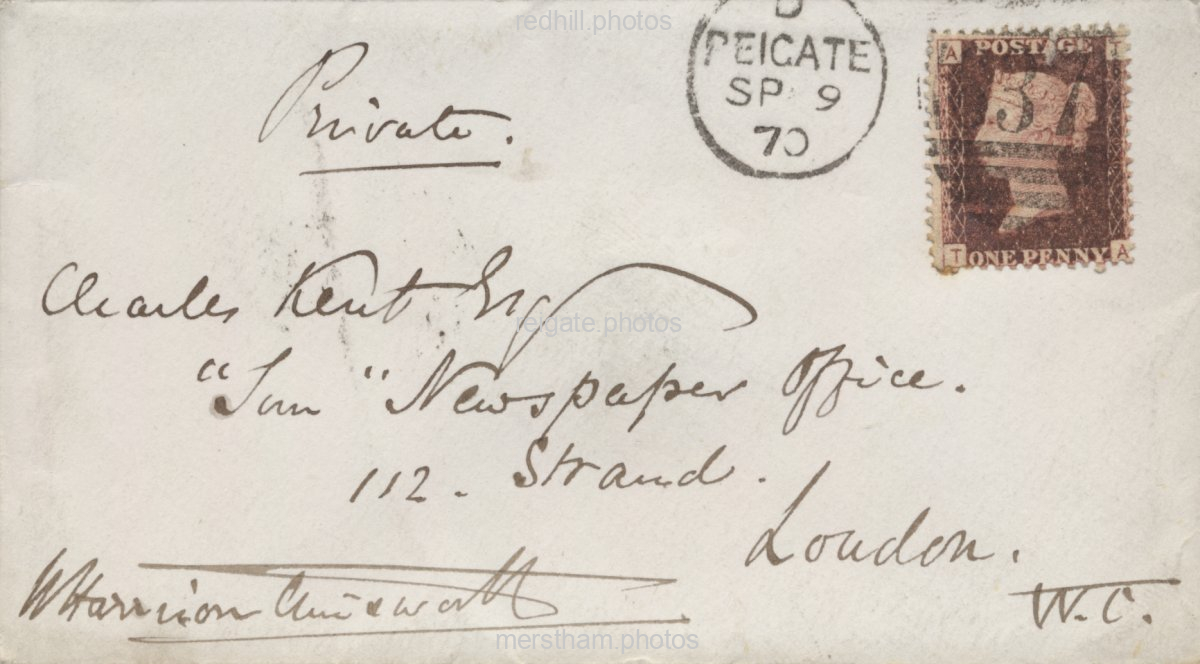 redhill.photos
D
REIGATE
SP 9
70
A POSTAGE T
37
T ONE PENNY A
Private.
Charles Kent Esq
reigate.photos
"Sun" Newspaper Office.
112. Strand.
London.
W.C.
W Harrison Ainsworth
merstham.photos